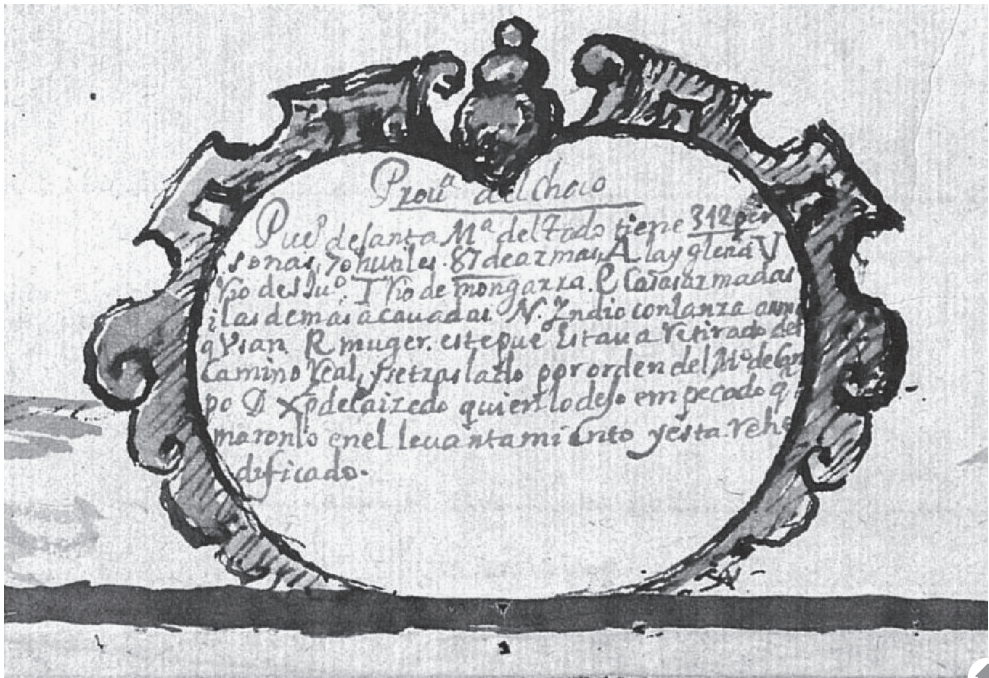 Prouª del choco
Pueº de santa Mª del Zado tiene 312 per
sonas, 70 hutiles. 87 de armas, A la yglesia V
Rio de sJuº. T Rio de mongarra. P Casas armadas
i las demas acauadas N. Indio con lanza
q Vsan R muger. este pueº Estaua Retirado del
Camino Real, y se traslado por orden del Mº de Cam
po D Xpº de Caizedo quien lo dejo empecado q
maronlo en el levantamiento y esta Rehe
dificado.